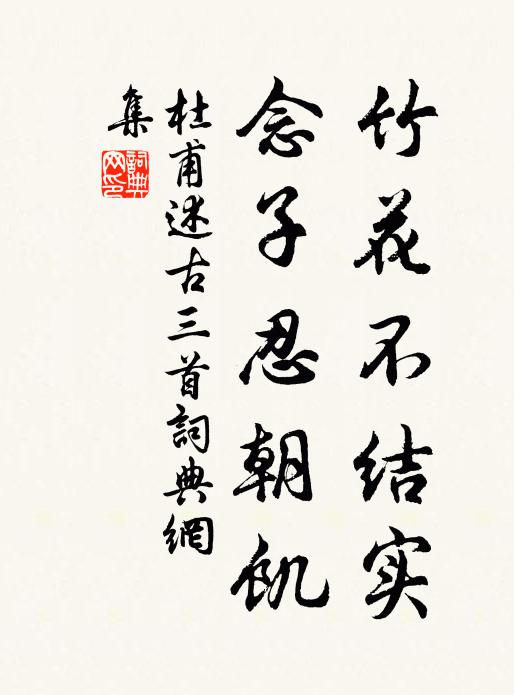 竹花不结实
念子忍朝饥
杜甫述古三首詞典網
集
詞典
网印